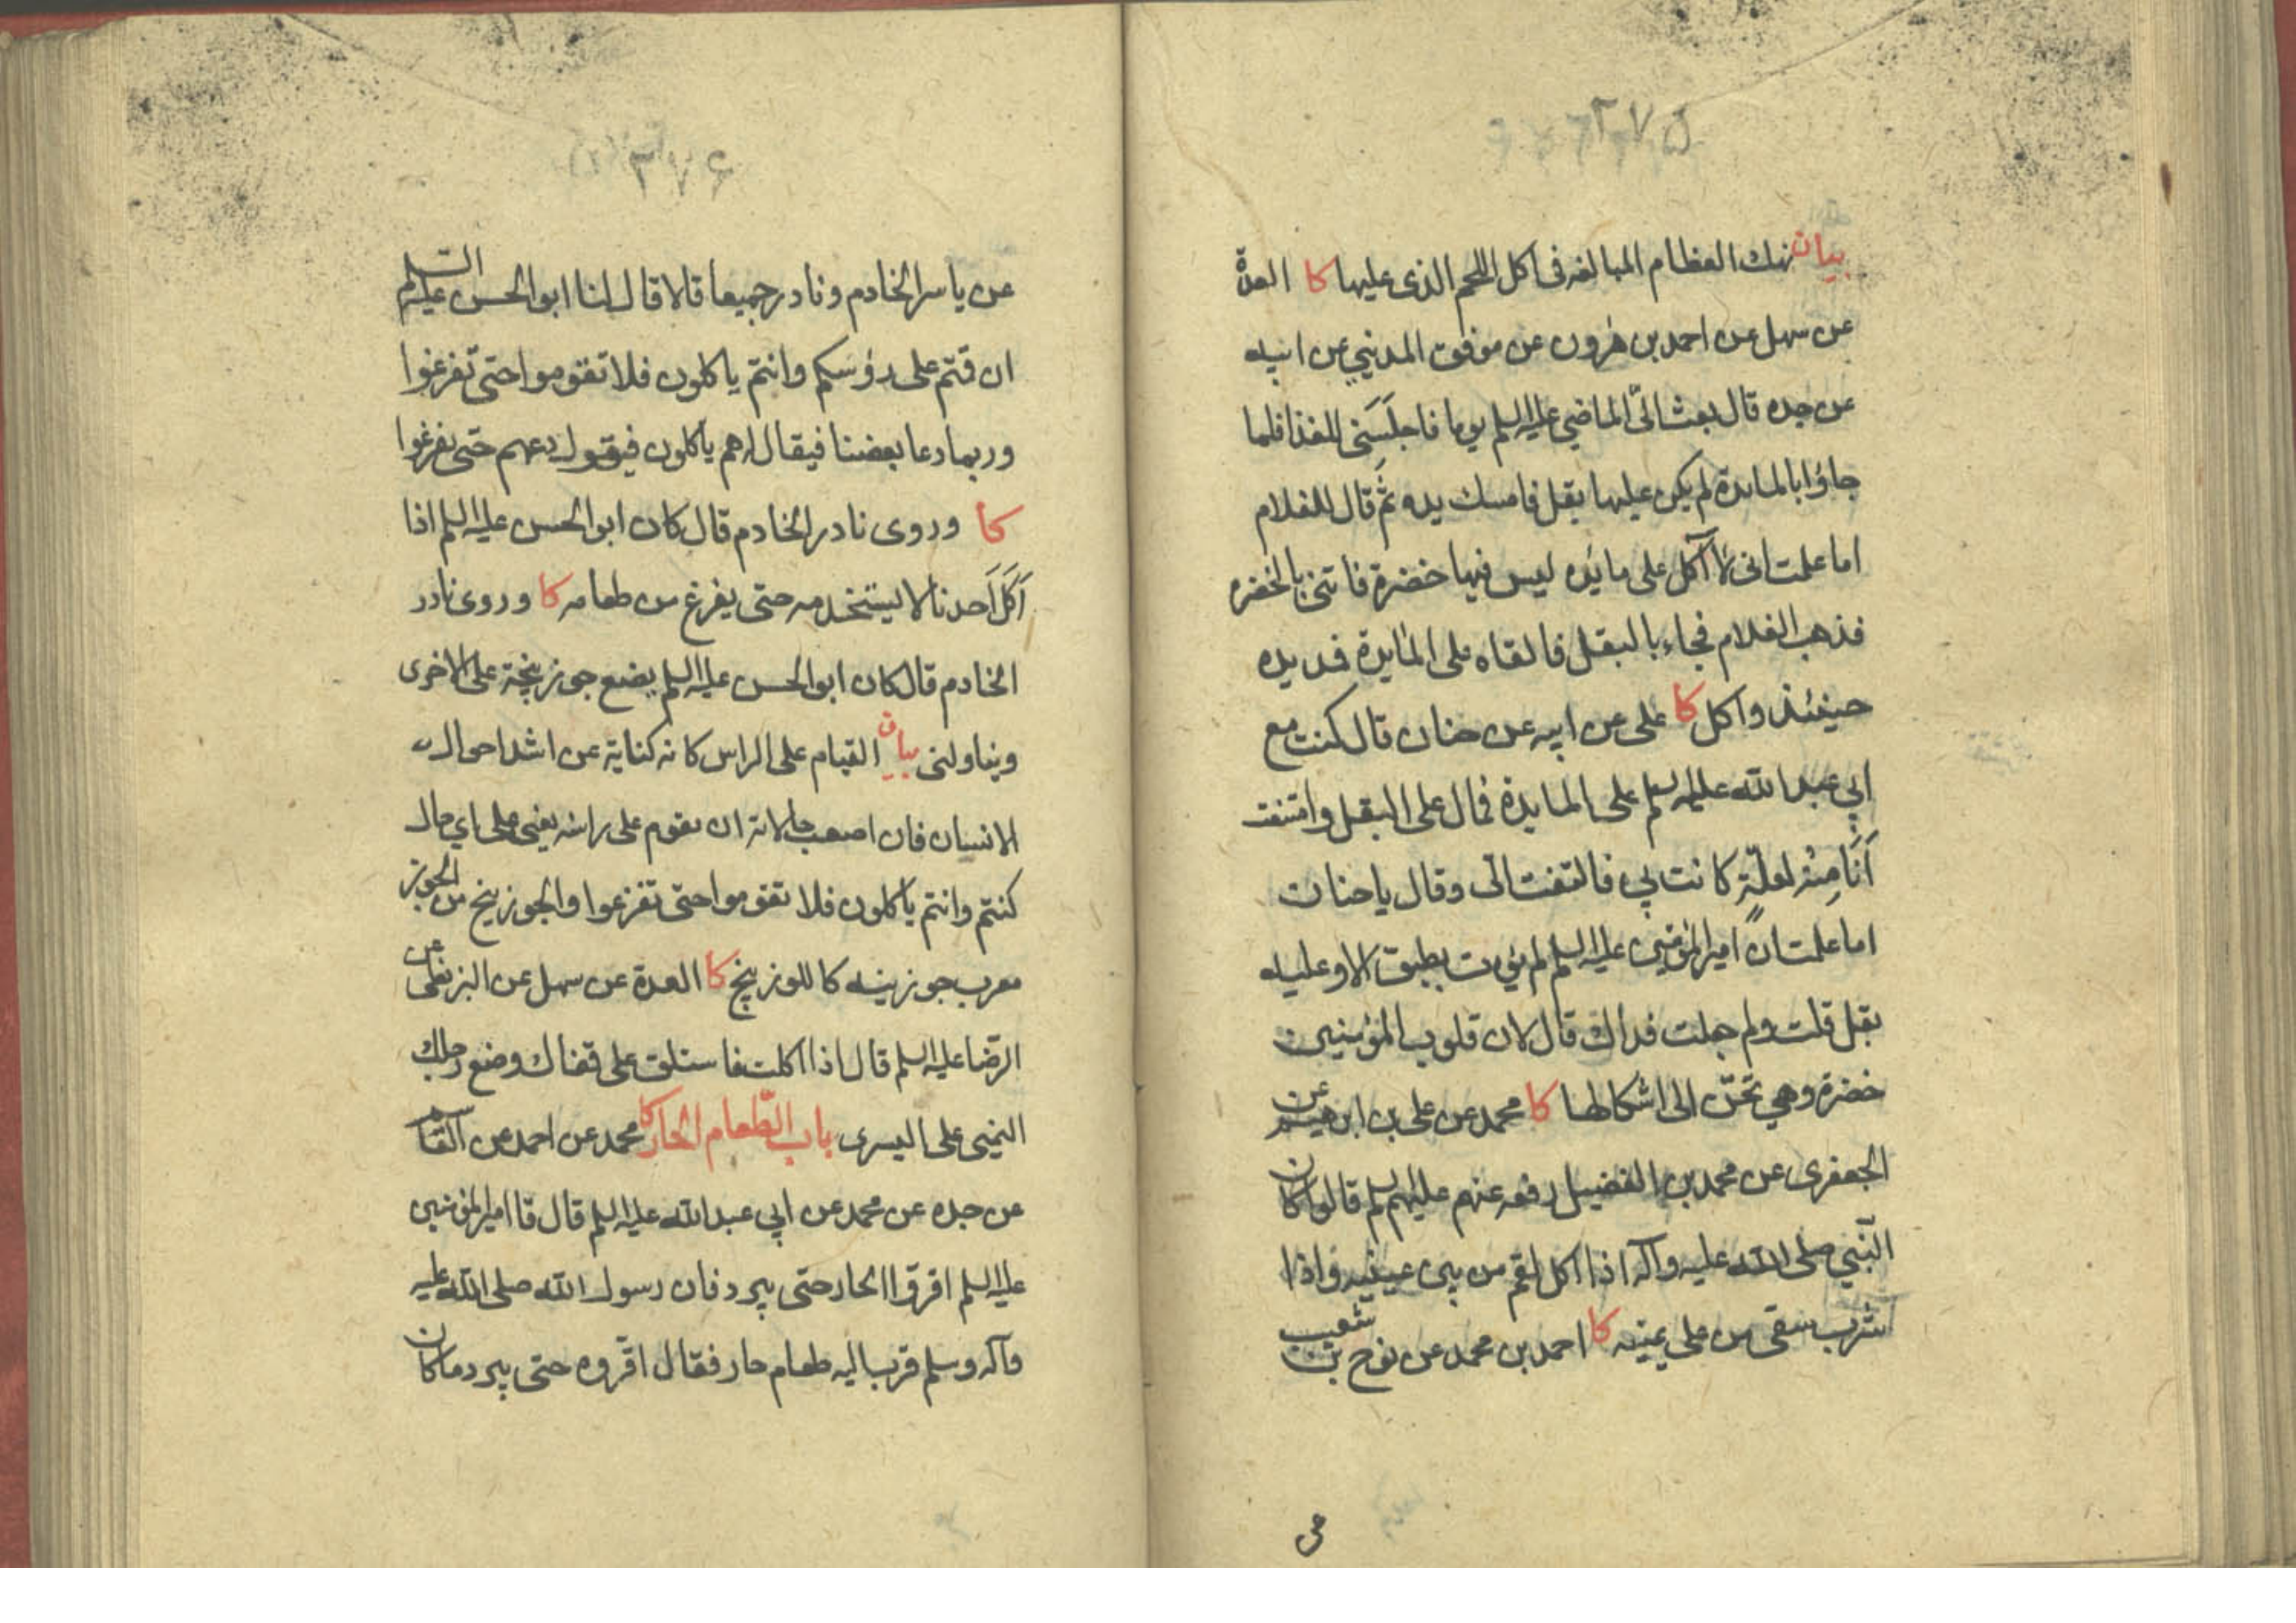 ۳۷۵
بيان نهك العظام المبالغه فى اكل اللحم الذى عليها كا العدة
عن سهل عن احمد بن هرون عن موفق المدينى عن ابيه
عن جده قال بعث الىّ الماضي عليه السلم يوما فاجلَسَنى للغذا فلما
جاؤا بالمايدة لم يكن عليها بقل فامسك يده ثم قال للغلام
اما علمت انى لا آكل على مائده ليس فيها خضرة فاتنى بالخضره
فذهب الغلام فجاء بالبقل فالقاه على المائدة فمد يده
حينئذ واكل كا على عن ابيه عن حنان قال كنت مع
ابي عبد الله عليه السلم على المايدة فمال على البقل وامتنعت
اَنَا مِنْه لعلّةٍ كانت بي فالتفت الى وقال يا حنان
اما علمت انّ امير المؤمنين عليه السلم لم يؤت بطبق الا وعليه
بقل قلت ولم جعلت فداك قال لان قلوب المؤمنين
خضرة وهي تحنّ الى اشكالها كا محمد عن على بن ابرهيم عن
الجعفرى عن محمد بن الفضيل رفعه عنهم عليهم السلم قالوا كان
النّبي صلى الله عليه وآله اذا اكل لقم من بين عينيه واذا
شرب سقى من على يمينه كا احمد بن محمد عن نوح بن شعيب
عن
۳۷۶
عن ياسر الخادم ونادر جميعا قالا قال لنا ابو الحسن عليه السلم
ان قمتم على رؤسكم وانتم ياكلون فلا تقوموا حتى تفرغوا
وربما دعا بعضنا فيقال هم ياكلون فيقول دعهم حتى يفرغوا
كا وروى نادر الخادم قال كان ابو الحسن عليه السلم اذا
اَكَلَ اَحدنا لا يستخدمه حتى يفرغ من طعامه كا وروى نادر
الخادم قال كان ابو الحسن عليه السلم يضع جوزينجة على الاخرى
ويناولنى بيان القيام على الراس كانه كناية عن اشد احوال
الانسان فان اصعب حالاته ان يقوم على راسه يعنى على اي حال
كنتم وانتم ياكلون فلا تقوموا حتى تفرغوا والجوزينج من الجوز
معرب جوزينه كاللوزينج كا العدة عن سهل عن البزنطى عن
الرّضا عليه السلم قال اذا اكلت فاستلق على قفاك وضع رجلك
اليمنى على اليسرى باب الطّعام الحار كا محمد عن احمد عن القاسم
عن جده عن محمد عن ابي عبد الله عليه السلم قال قا امير المؤمنين
عليه السلم اقروا الحار حتى يبرد فان رسول الله صلى الله عليه
وآله وسلم قرب اليه طعام حار فقال اقروه حتى يبرد ما كان